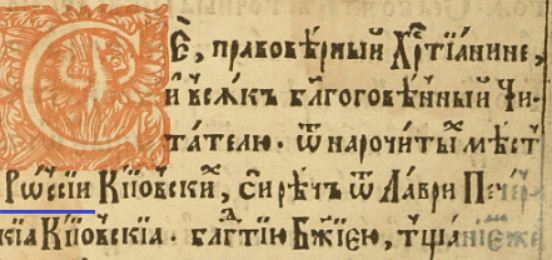 Сѐ, правовѣ́рный Хр҇тїа́нине,
и҆ всѧ́къ бл҃гоговѣ́йный Чи-
та́телю. Ѿ нарочи́тыⷯ мѣ́ст
Рѡ́ссїи Кїѡ́вскиⷯ, си рѣ́чъ ѿ Ла́ври Пече́р-
скїѧ Кїѡ́вскїѧ. бл҃гⷣтїю Бж҃їею, тща́нїемже